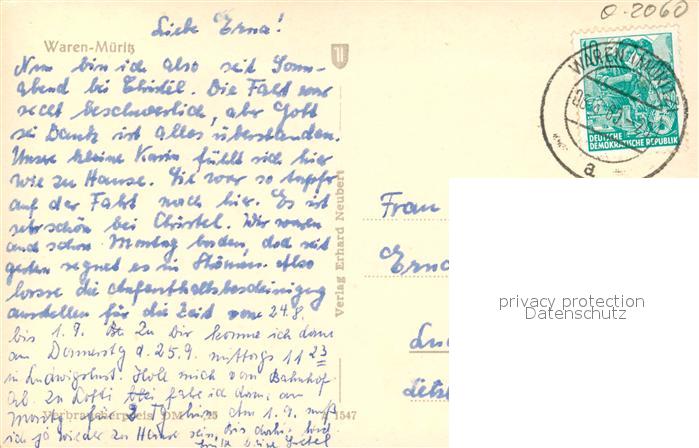 O-2060
Liebe Erna!
Waren-Müritz
Nun bin ich also seit Sonn-
abend bei Christel. Die Fahrt war
recht beschwerlich, aber Gott
sei Dank ist alles überstanden.
Unsre kleine Karin fühlt sich hier
wie zu Hause. Sie war so tapfer
auf der Fahrt nach hier. Es ist
sehr schön bei Christel. Wir waren
auch schon Montag baden, doch seit
gestern regnet es in Strömen. Also
lasse die Aufenthaltsbescheinigung
ausstellen für die Zeit vom 24.8.
bis 1.9. Zu Dir komme ich dann
am Donnerstg d. 25.9. mittags 11 23
in Ludwigslust. Hole mich vom Bahnhof
ab. Zu Lotti fahre ich dann am
Montg für 2 Tg hin. Am 1.9. muß
ich ja wieder zu Hause sein. Bis dahin
Verbraucherpreis DM
1547
Verlag Erhard Neubert
WAREN (MÜRITZ)
a
DEUTSCHE
DEMOKRATISCHE REPUBLIK
Frau
Erna
privacy protection
Datenschutz